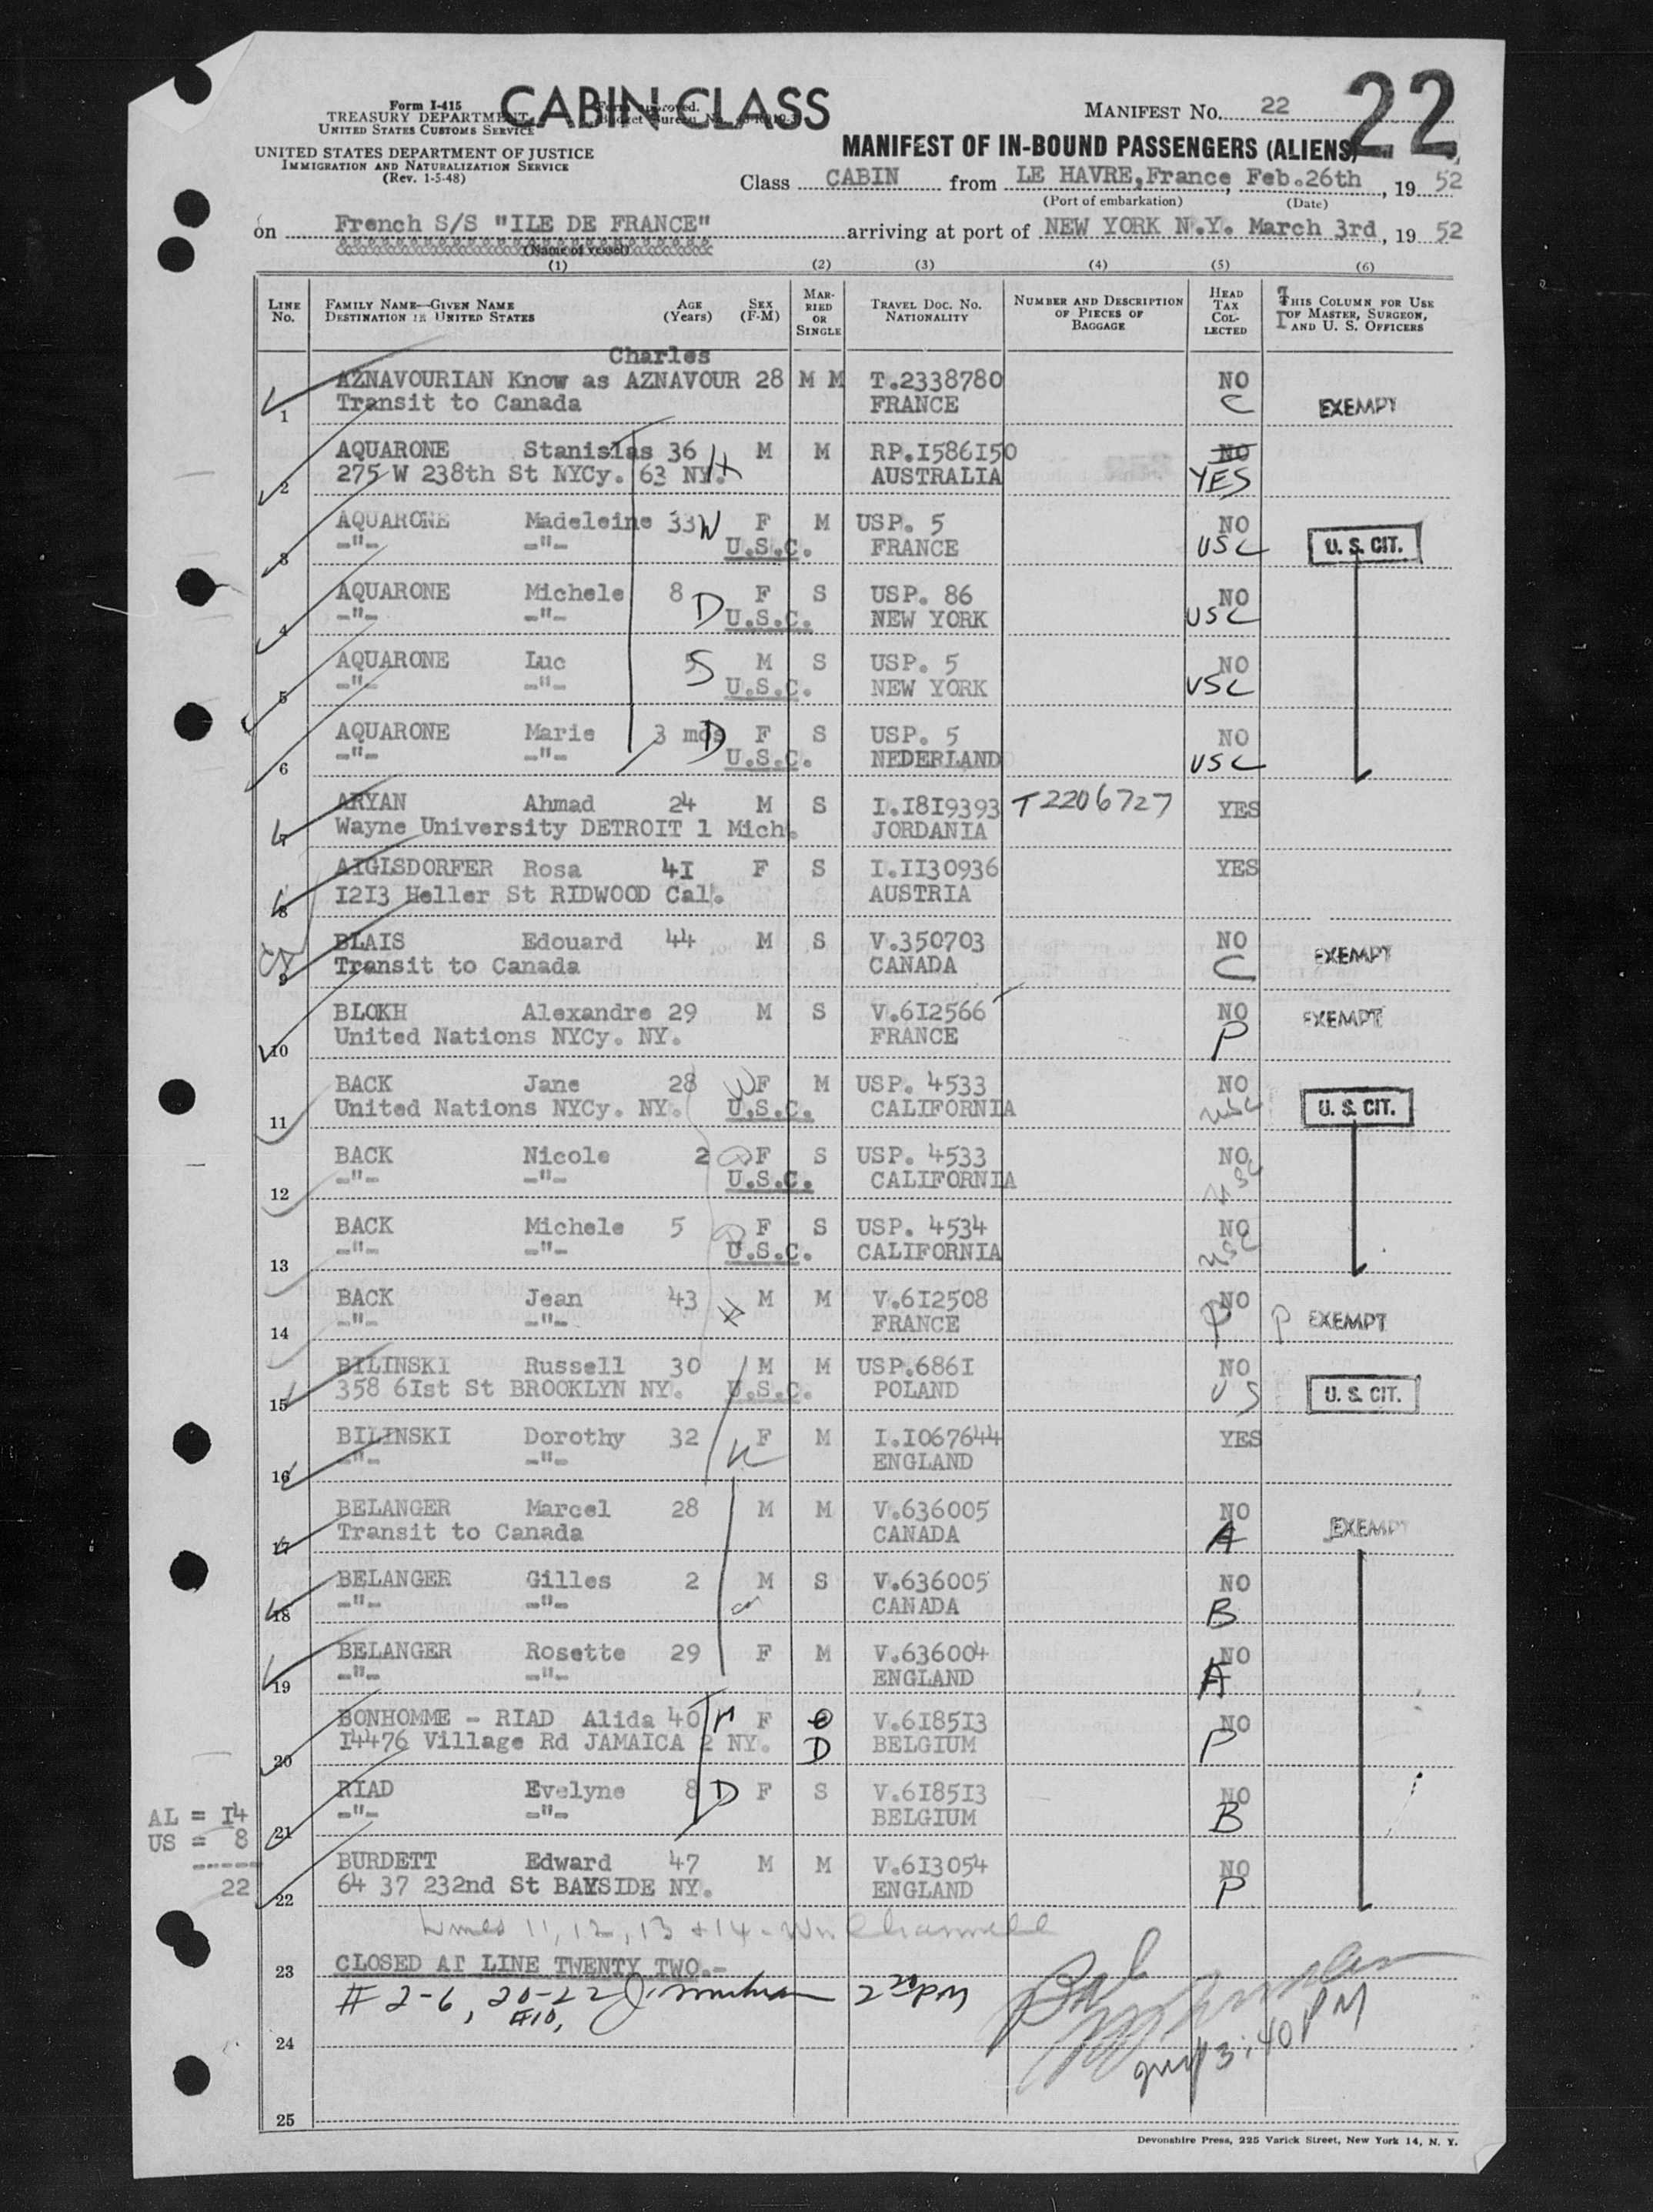 Form I-415
TREASURY DEPARTMENT
UNITED STATES CUSTOMS SERVICE
CABIN CLASS
Form approved.
MANIFEST NO. 22
22
UNITED STATES DEPARTMENT OF JUSTICE
IMMIGRATION AND NATURALIZATION SERVICE
(Rev. 1-5-48)
MANIFEST OF IN-BOUND PASSENGERS (ALIENS)
Class CABIN from LE HAVRE, France, Feb. 26th, 19 52
(Port of embarkation) (Date)
on French S/S "ILE DE FRANCE" arriving at port of NEW YORK N.Y. March 3rd, 19 52
(Name of vessel)
(1) (2) (3) (4) (5) (6)
LINE No. FAMILY NAME—GIVEN NAME DESTINATION IN UNITED STATES AGE (Years) SEX (F-M) MARRIED OR SINGLE TRAVEL DOC. NO. NATIONALITY NUMBER AND DESCRIPTION OF PIECES OF BAGGAGE HEAD TAX COLLECTED THIS COLUMN FOR USE OF MASTER, SURGEON, AND U. S. OFFICERS
Charles
1 AZNAVOURIAN Know as AZNAVOUR 28 M M T.2338780 NO
Transit to Canada FRANCE C EXEMPT
AQUARONE Stanislas 36 H M M RP.I586I50 NO
2 275 W 238th St NYCy. 63 NY. AUSTRALIA YES
AQUARONE Madeleine 33 W F M USP. 5 NO
3 -"- -"- U.S.C. FRANCE USC U. S. CIT.
AQUARONE Michele 8 D F S USP. 86 NO
4 -"- -"- U.S.C. NEW YORK USC
AQUARONE Luc 5 S M S USP. 5 NO
5 -"- -"- U.S.C. NEW YORK USC
AQUARONE Marie 3 mos D F S USP. 5 NO
6 -"- -"- U.S.C. NEDERLAND USC
ARYAN Ahmad 24 M S I.I8I9393 T2206727 YES
7 Wayne University DETROIT 1 Mich. JORDANIA
AIGLSDORFER Rosa 4I F S I.II30936 YES
8 I2I3 Heller St RIDWOOD Cal. AUSTRIA
BLAIS Edouard 44 M S V.350703 NO EXEMPT
9 Transit to Canada CANADA C
BLOKH Alexandre 29 M S V.6I2566 NO EXEMPT
10 United Nations NYCy. NY. FRANCE P
BACK Jane 28 W F M USP. 4533 NO
11 United Nations NYCy. NY. U.S.C. CALIFORNIA USC U. S. CIT.
BACK Nicole 2 D F S USP. 4533 NO
12 -"- -"- U.S.C. CALIFORNIA USC
BACK Michele 5 D F S USP. 4534 NO
13 -"- -"- U.S.C. CALIFORNIA USC
BACK Jean 43 H M M V.6I2508 NO
14 -"- -"- FRANCE P P EXEMPT
BILINSKI Russell 30 M M USP.686I NO
15 358 6Ist St BROOKLYN NY. U.S.C. POLAND US U. S. CIT.
BILINSKI Dorothy 32 W F M I.I067644 YES
16 -"- -"- ENGLAND
BELANGER Marcel 28 M M V.636005 NO
17 Transit to Canada CANADA A EXEMPT
BELANGER Gilles 2 S M S V.636005 NO
18 -"- -"- CANADA B
BELANGER Rosette 29 F M V.636004 NO
19 -"- -"- ENGLAND A
BONHOMME - RIAD Alida 40 M F V.6I85I3 NO
20 I4476 Village Rd JAMAICA 2 NY. D BELGIUM P
RIAD Evelyne 8 D F S V.6I85I3 NO
21 -"- -"- BELGIUM B
AL = I4
US = 8
-----
22
BURDETT Edward 47 M M V.6I3054 NO
22 64 37 232nd St BAYSIDE NY. ENGLAND P
Lines 11, 12, 13 + 14 - Wm
23 CLOSED AT LINE TWENTY TWO.-
# 2-6, 20-22 2 20 PM
#10,
3:40 PM
24
25
Devonshire Press, 225 Varick Street, New York 14, N. Y.